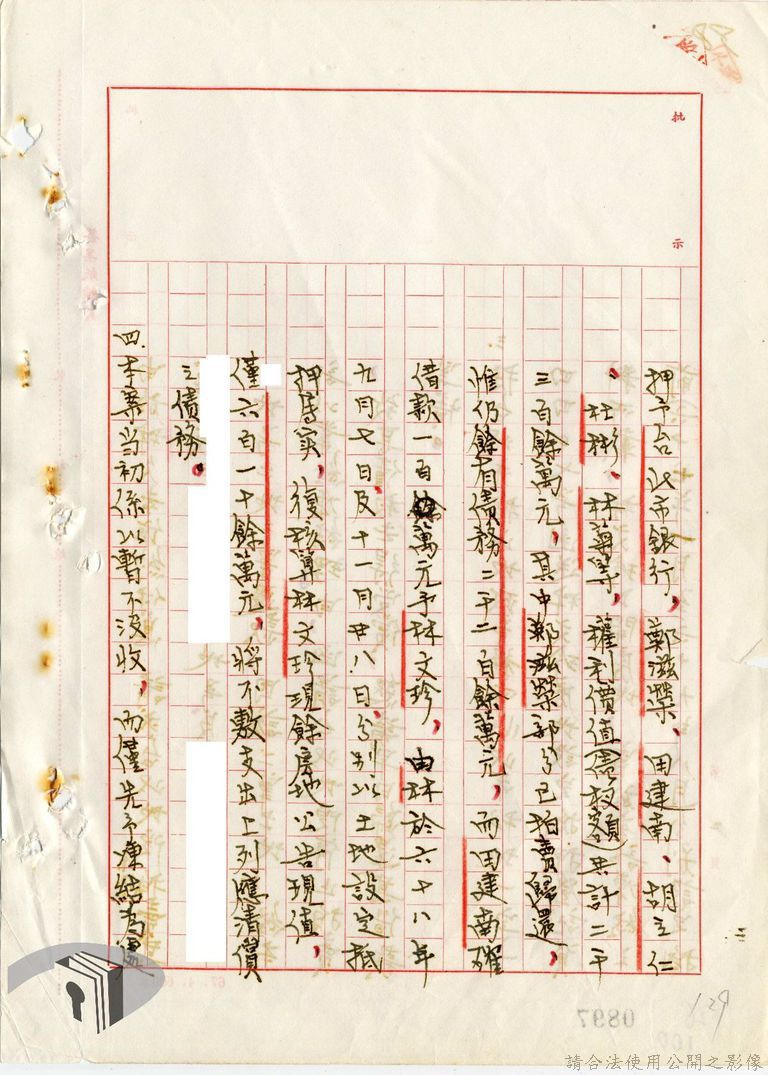 批示
押予台北市銀行，鄭滋榮、田建南、胡立仁
、杜彬、林尊等，權利價值（債權額）共計二千
三百餘萬元，其中鄭滋榮部分已拍賣歸還，
惟仍餘有債務二千二百餘萬元，而田建南確
借款一百萬元予林文珍，由林於六十八年
九月七日及十一月廿八日，分別以土地設定抵
押屬實，復核算林文珍現餘房地公告現值，
僅六百一十餘萬元，將不敷支出上列應清償
之債務。
四、本案當初係以暫不沒收，而僅先予凍結為宜
129
0897
請合法使用公開之影像